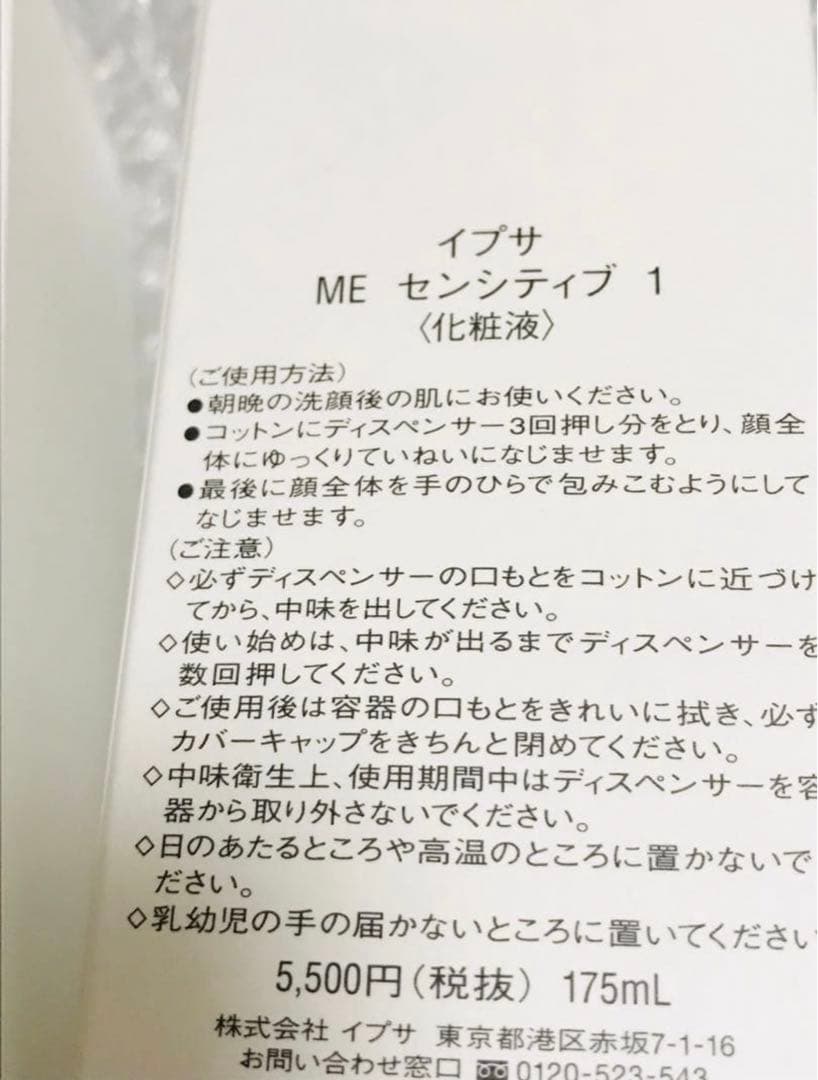 イプサ
ME センシティブ 1
〈化粧液〉
(ご使用方法)
●朝晩の洗顔後の肌にお使いください。
●コットンにディスペンサー3回押し分をとり、顔全
体にゆっくりていねいになじませます。
●最後に顔全体を手のひらで包みこむようにして
なじませます。
(ご注意)
◇必ずディスペンサーの口もとをコットンに近づけ
てから、中味を出してください。
◇使い始めは、中味が出るまでディスペンサーを
数回押してください。
◇ご使用後は容器の口もとをきれいに拭き、必ず
カバーキャップをきちんと閉めてください。
◇中味衛生上、使用期間中はディスペンサーを容
器から取り外さないでください。
◇日のあたるところや高温のところに置かないで
ださい。
◇乳幼児の手の届かないところに置いてください
5,500円(税抜) 175mL
株式会社 イプサ 東京都港区赤坂7-1-16
お問い合わせ窓口 0120-523-543